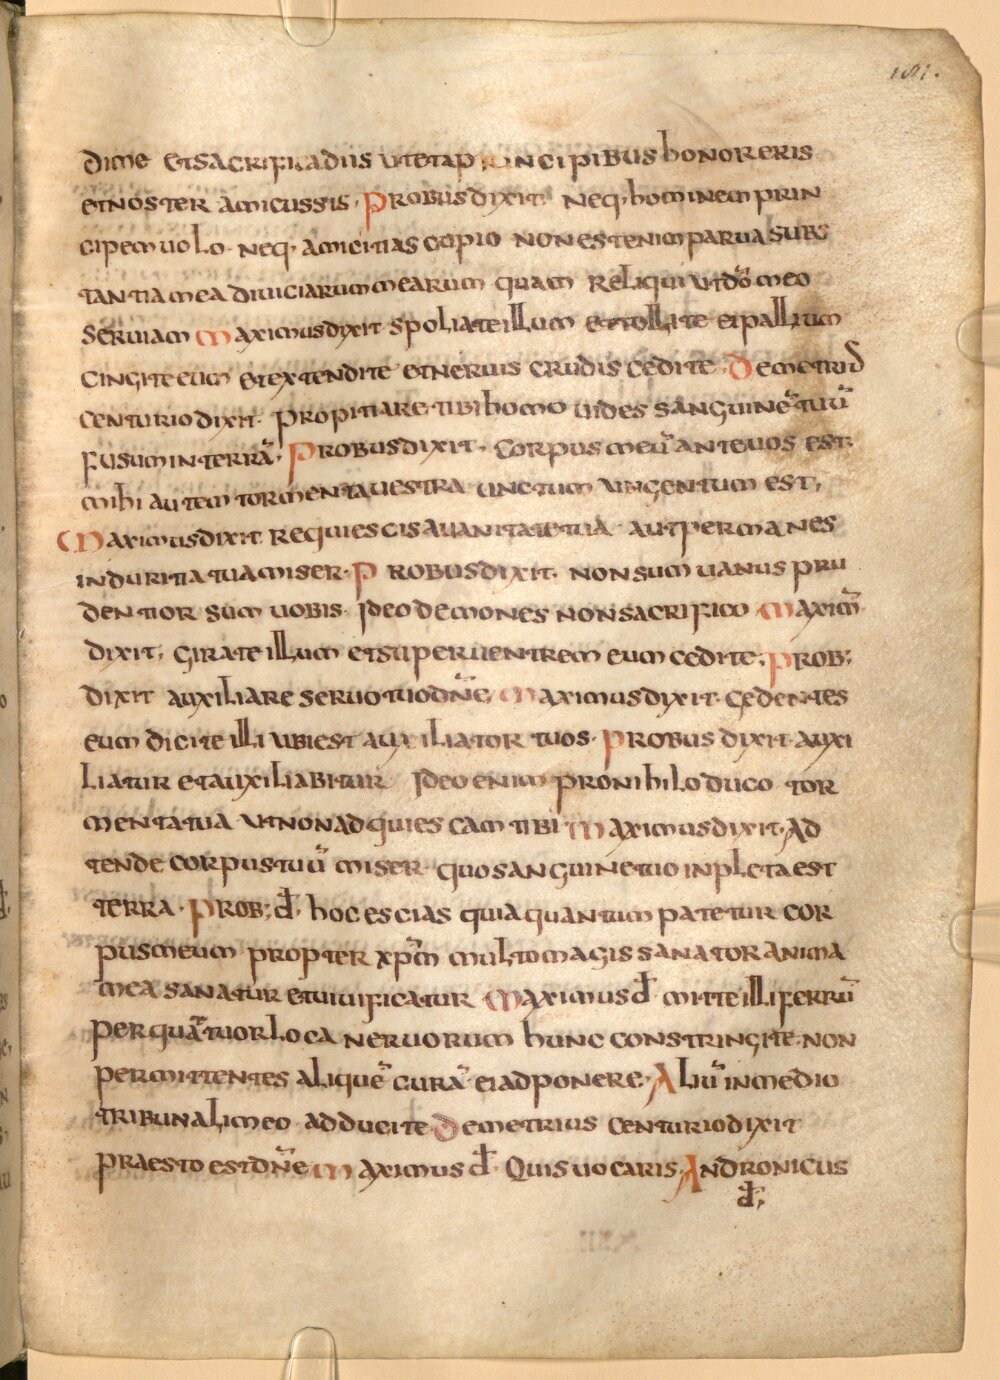 181.
dime et sacrifica diis ut et a principibus honoreris
et noster amicus sis. Probus dixit. Neq; hominem prin
cipem uolo. neq; amicitias cupio non est enim parua subs
tantia mea diuiciarum mearum quam reliqui ut dō meo
seruiam Maximus dixit spoliate illum et tollite ei pallium
cingite eum et extendite et neruis crudis cedite. Demetrius
centurio dixit. propitiare tibi homo uides sanguinē tuū
fusum in terrā. Probus dixit. Corpus meū ante uos est.
mihi autem tormenta uestra unctum ungentum est;
Maximus dixit. Requiescis a uanitate tua aut permanes
in duritia tua miser. Probus dixit. non sum uanus pru
dentior sum uobis. Ideo demones non sacrifico Maxim̄
dixit; Girate illum et super uentrem eum cedite; Prob;
dixit auxiliare seruo tuo dn̄e; Maximus dixit. Cedentes
eum dicite illi ubi est auxiliator tuos. Probus dixit. auxi
liatur et auxiliabitur Ideo enim pro nihilo duco tor
menta tua ut non adquiescam tibi. Maximus dixit. Ad
tende corpus tuū miser quo sanguine tuo inpleta est
terra. Prob; đ. hoc escias quia quantum patetur cor
pus meum propter xpm̄ multo magis sanator anima
mea sanatur et uiuificatur Maximus đ mitte illi ferrū
per quattuor loca neruorum hunc constringite. non
permittentes aliquē curā ei adponere. Aliū in medio
tribunali meo adducite Demetrius centurio dixit
praesto est dn̄e Maximus đ. Quis uocaris. Andronicus
đ;